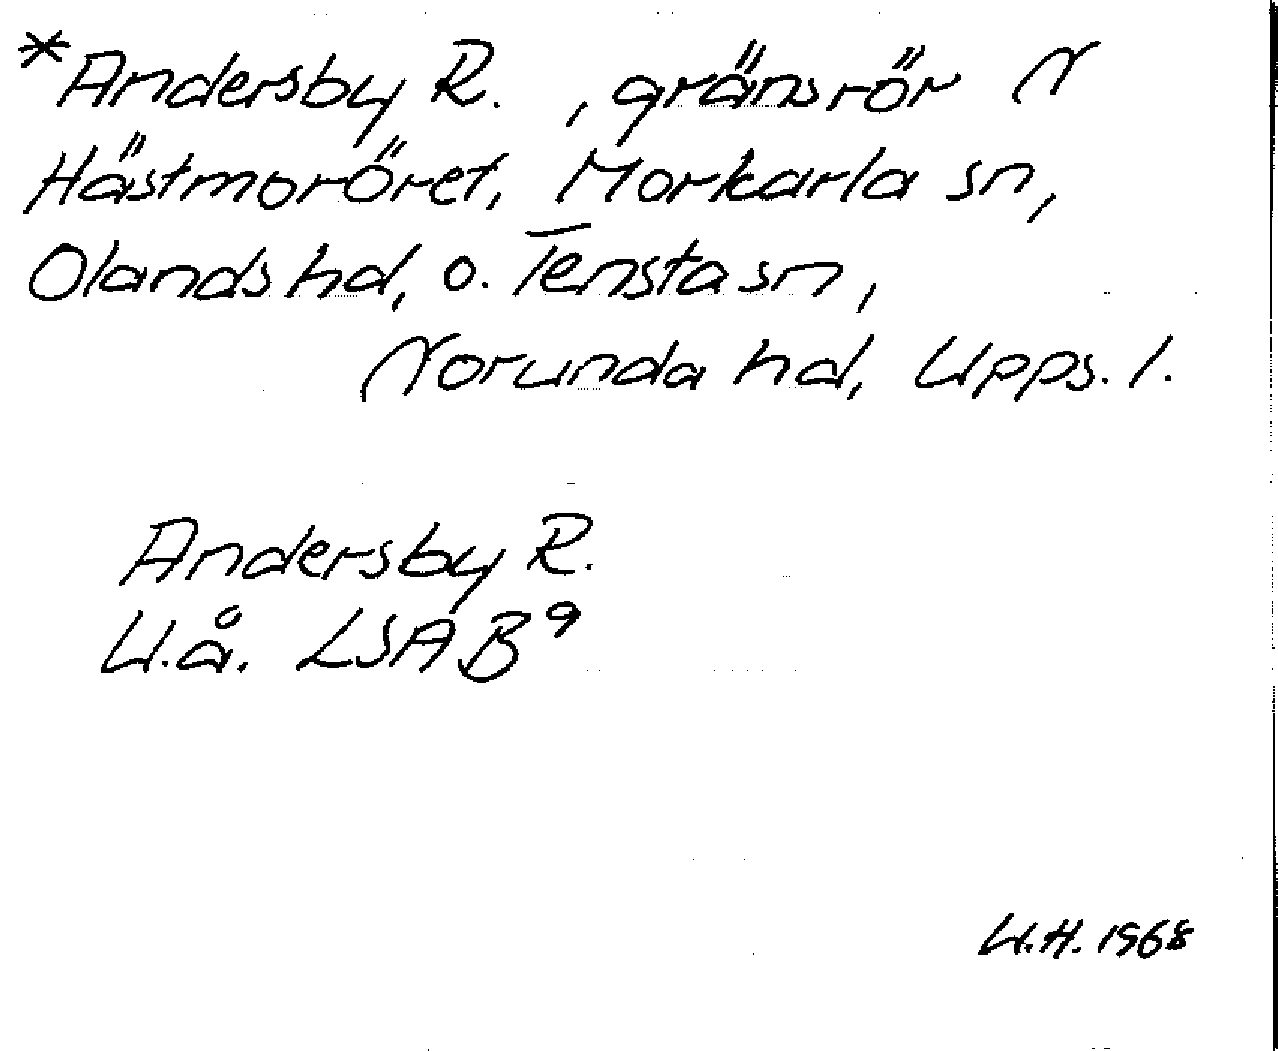 *Andersby R. , gränsrör N
Hästmoröret, Morkarla sn,
Olands hd, o. Tensta sn,
Norunda hd, Upps. l.
Andersby R.
U.å. LSA B9
U.H. 1968